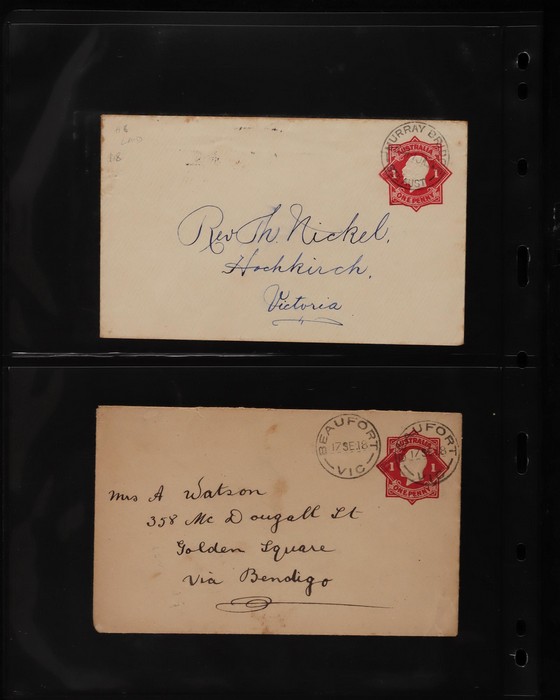 MURRAY BRI
AUSTRALIA
1 1
ONE PENNY
Rev Th. Nickel,
Hochkirch,
Victoria
BEAUFORT
17SE18
VIC
AUFORT
17SE18
AUSTRALIA
1 1
ONE PENNY
Mrs A Watson
358 Mc Dougall St
Golden Square
Via Bendigo